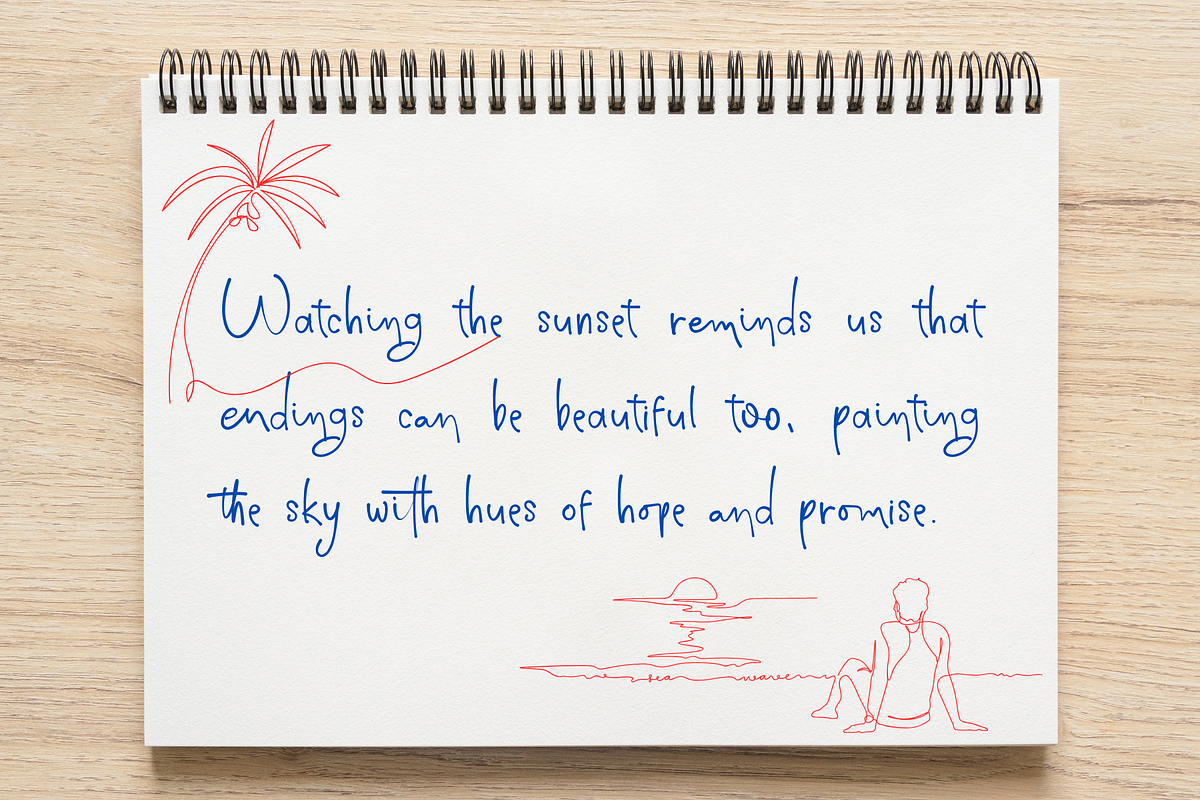 Watching the sunset reminds us that
endings can be beautiful too, painting
the sky with hues of hope and promise.
sea wave